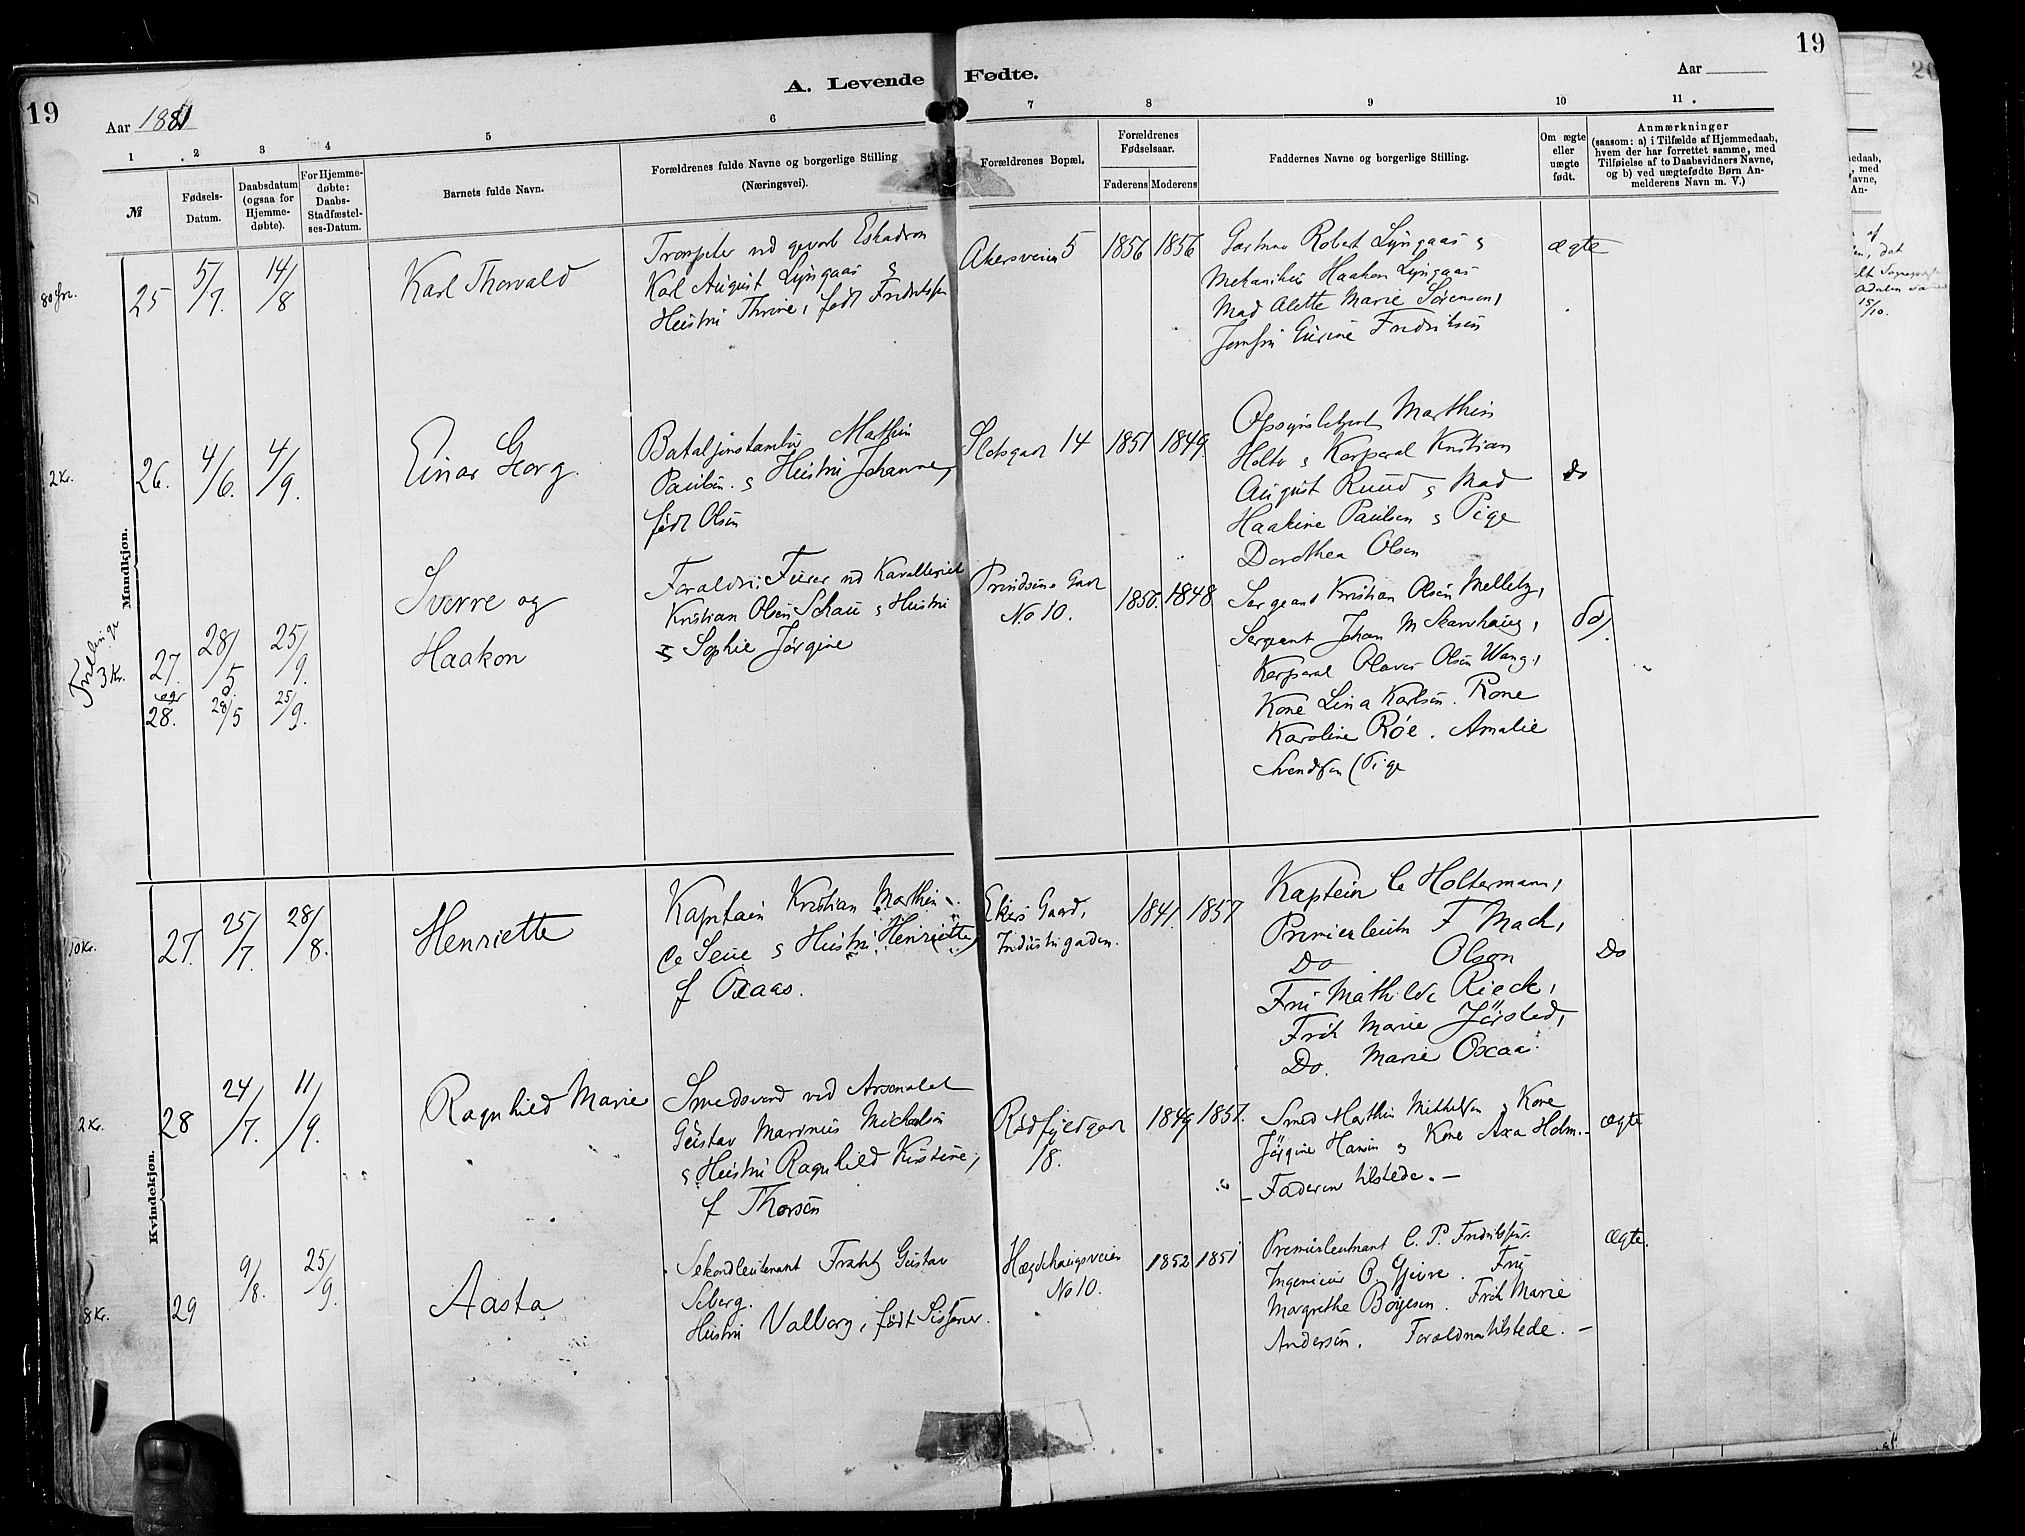 19
A. Levende Fødte.
19
Aar 1881
Aar
1
2
3
4
5
6
7
8
9
10
11.
№
Fødsels-
Datum.
Daabsdatum
(ogsaa for
Hjemme-
døbte).
For Hjemme-
døbte:
Daabs-
Stadfæstel-
ses-Datum.
Barnets fulde Navn.
Forældrenes fulde Navne og borgerlige Stilling
(Næringsvei).
Forældrenes Bopæl.
Forældrenes
Fødselsaar.
Faderens
Moderens
Faddernes Navne og borgerlige Stilling.
Om ægte
eller
uægte
født.
Anmærkninger
(saasom: a) i Tilfælde af Hjemmedaab,
hvem der har forrettet samme, med
Tilføielse af to Daabsvidners Navne,
og b) ved uægtefødte Børn An-
melderens Navn m. V.)
Mandkjøn.
25
5/7.
14/8
Karl Thorvald
Trompeter ved gevorb Eskadron
Karl August Lyngaas &
Hustru Thrine, født Fredriksen
Akersveien 5
1856
1856
Gartner Robert Lyngaas &
Mekanikus Haakon Lyngaas
Mad Alette Marie Sørensen,
Jomfru Gurine Fredriksen
ægte
2 Kr.
26.
4/6.
4/9.
Einar Georg.
Bataljonstambur Mathin
Paulsen. & Hustru Johanne,
født Olsen
Slotsgad 14
1851
1849
Opsynsbetjent Marthin
Holtv & Korporal Kristian
August Ruud & Mad
Haakine Paulsen & Pige
Dorothea Olsen
do
Tvillinge
3 Kr.
27.
og
28.
28/5
28/5
25/9.
25/9.
Sverre og
Haakon
Foraldre: Furer ved Kavalleriet
Kristian Olsen Schau & Hustru
& Sophie Jørgine
Prindsens Gad
No 10.
1856.
1848
Sergeant Kristian Olsen Melleby,
Sergeant Johan M Skarnhaug,
Korporal Olaves Olsen Wang,
Kone Lina Karlsen. Kone
Karoline Røe. Amalie
Svendsen (Pige
do.
Kvindekjøn.
10 Kr.
27.
25/7.
28/8.
Henriette
Kaptain Kristian Marthin
C Seue & Hustru Henriette,
f Oxaas.
Ekers Gaard,
Industrigaden.
1841.
1857
Kaptein C Holtermann,
Premierleutn F Mack,
Do Olsen
Fru Mathilde Rieck,
Frk Marie Jørsted,
Do. Marie Oxaas.
Do
2 Kr.
28
24/7.
11/9.
Ragnhild Marie
Smedsvend ved Arsenalet
Gustav Marinus Michelsen
& Hustru Ragnhild Kirstine,
f Thorsen
Rødfyldgad
18.
1849
1851.
Smed Marthin Mikkelsen, Kone
Jørgine Hansen & Kone Axa Holm.-
- Faderen tilstede. -
ægte
8 Kr.
29
9/8.
25/9.
Aasta
Sekondleutenant Frantz Gustav
Seberg.
Hustru Valborg, født Sissener.
Hægdehaugsveien
No 10.
1852
1851
Premierleutnant C. P. Fredriksen.
Ingeniør O Gjevre. Fru
Margrethe Boyesen. Frk Marie
Andersen. Foraldrene tilstede. -
ægte.